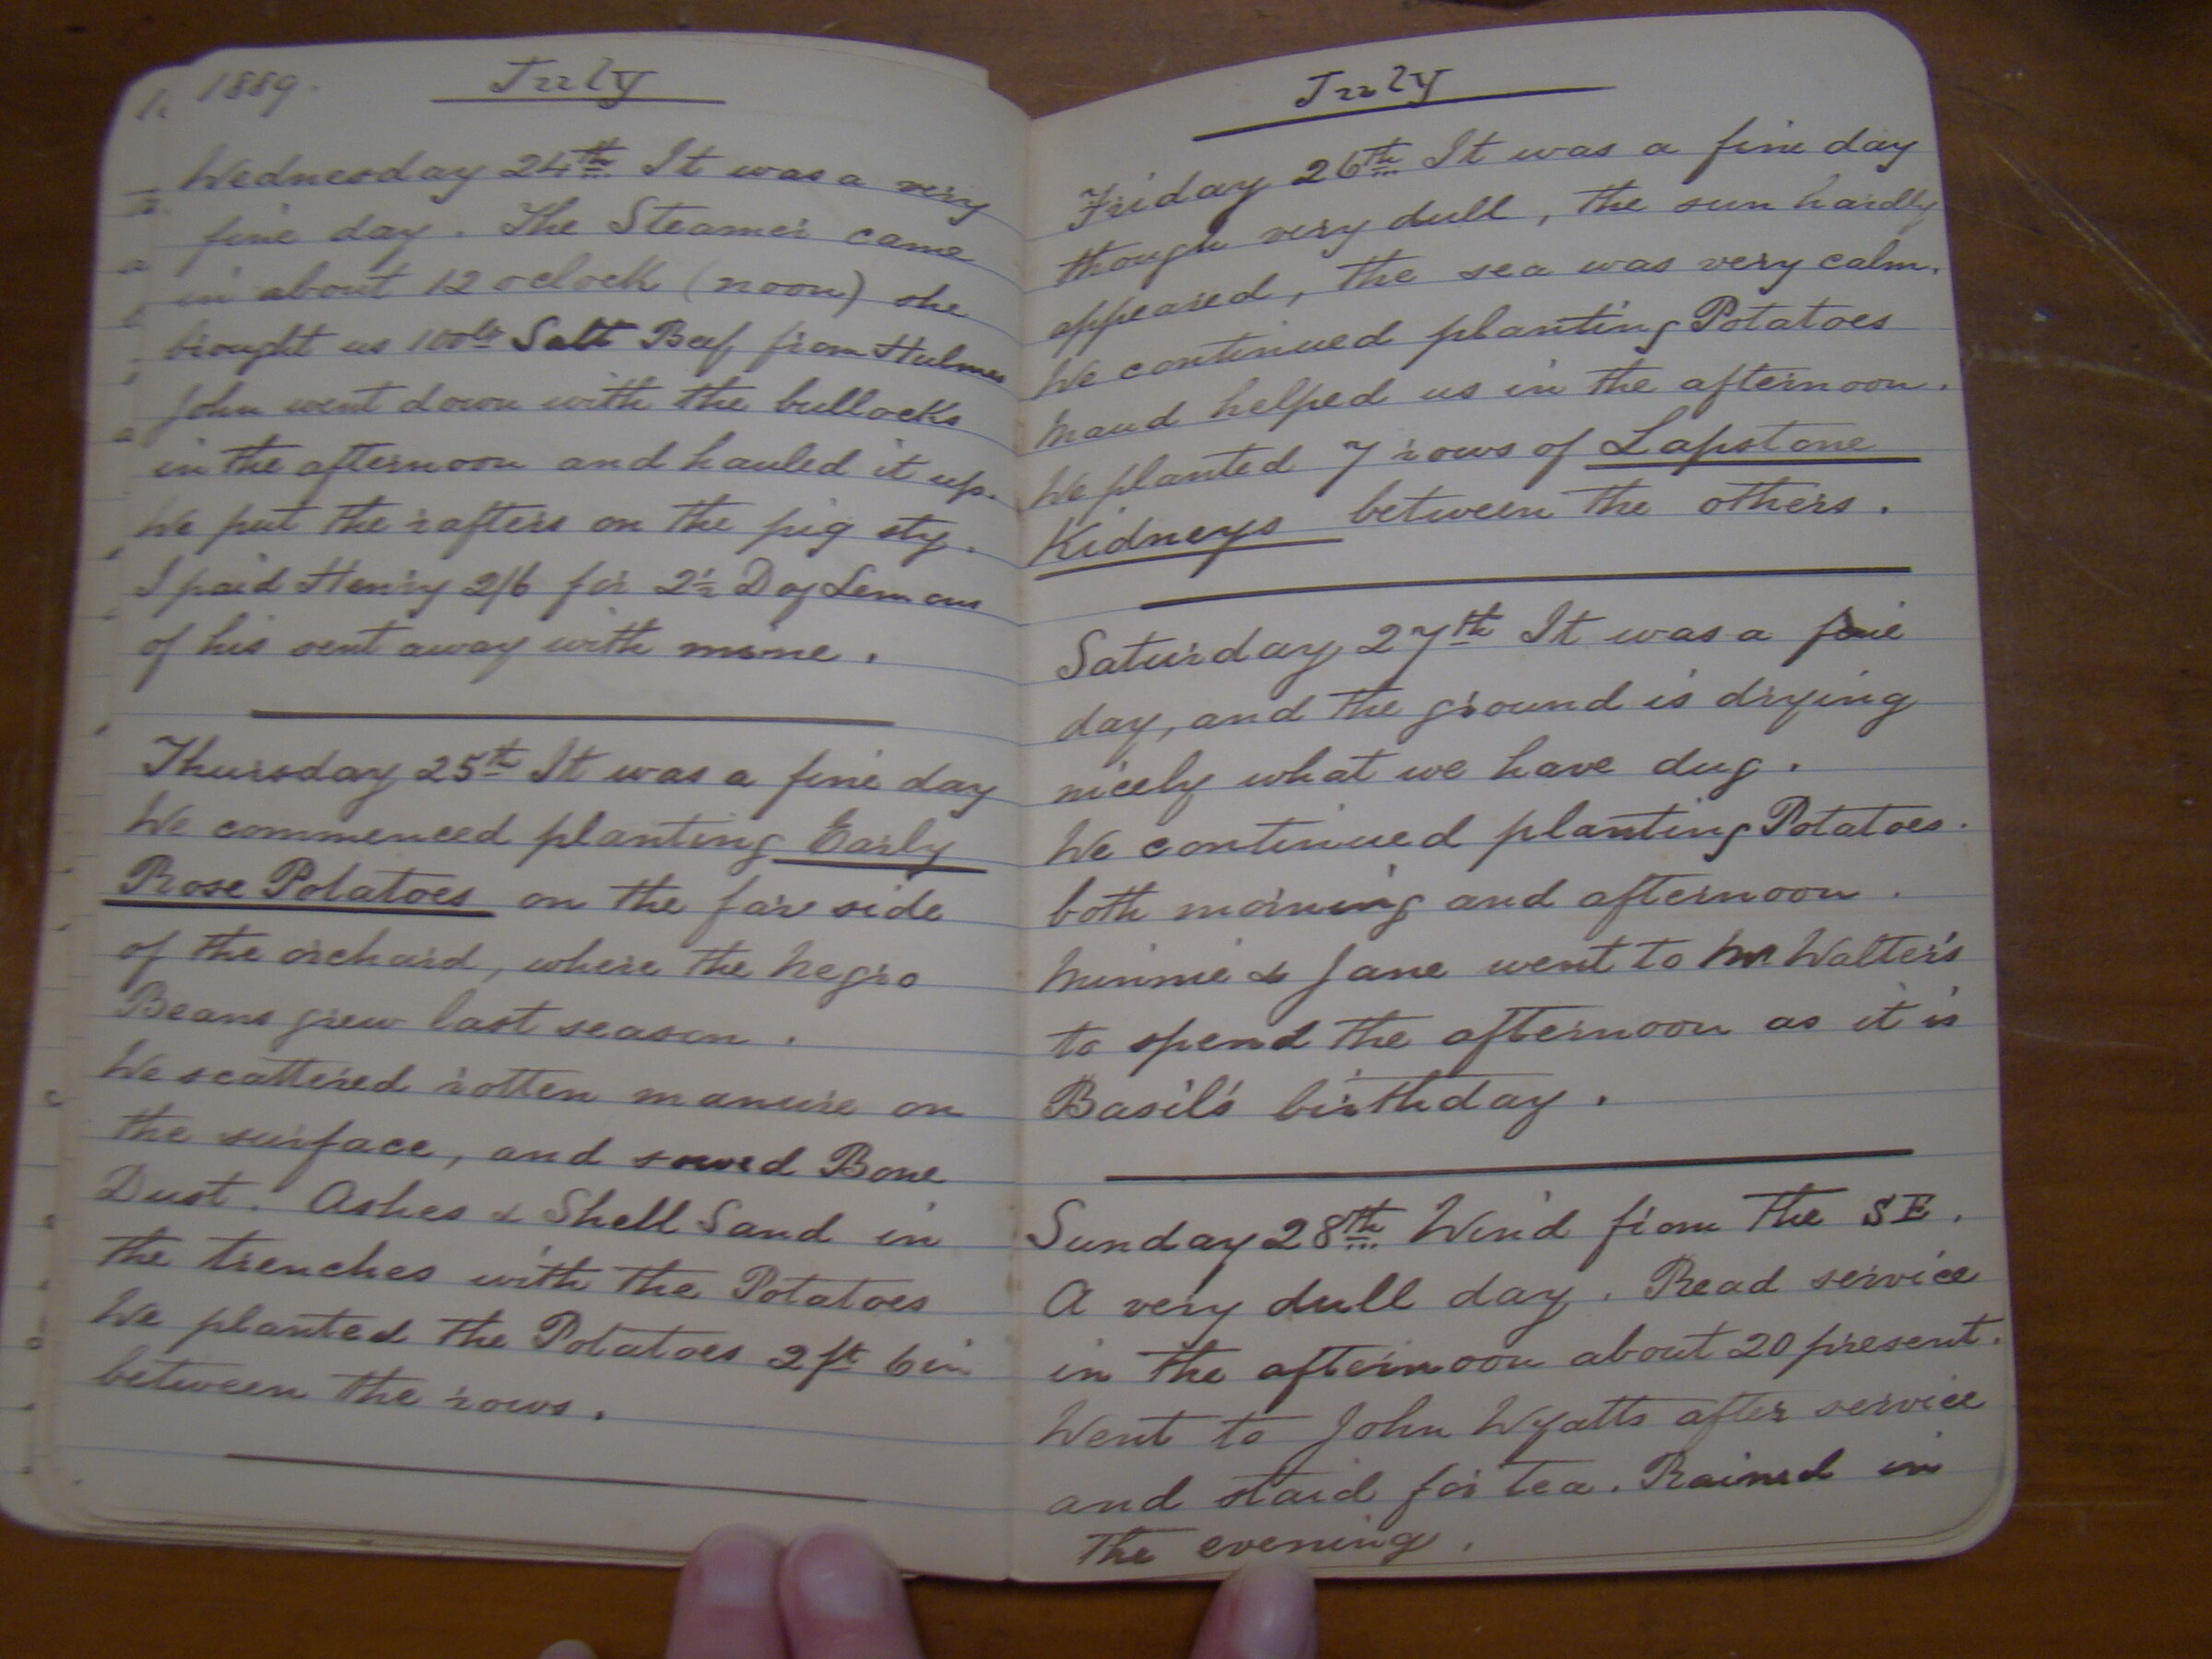 1889.
July
Wednesday 24th It was a very
fine day. The Steamer came
in about 12 oclock (noon) she
brought us 100lb Salt Beef from Hulmes
John went down with the bullocks
in the afternoon and hauled it up.
We put the rafters on the pig sty.
I paid Henry 2/6 for 2½ Doz Lemons
of his sent away with mine.
Thursday 25th It was a fine day
We commenced planting Early
Rose Potatoes on the far side
of the orchard, where the Negro
Beans grew last season.
We scattered rotten manure on
the surface, and sowed Bone
Dust. Ashes & Shell Sand in
the trenches with the Potatoes
We planted the Potatoes 2ft 6in
between the rows.
July
Friday 26th It was a fine day
though very dull, the sun hardly
appeared, the sea was very calm.
We continued planting Potatoes
Maud helped us in the afternoon.
We planted 7 rows of Lapstone
Kidneys between the others.
Saturday 27th It was a fine
day, and the ground is drying
nicely what we have dug.
We continued planting Potatoes.
both morning and afternoon.
Minnie & Jane went to Mr Walter's
to spend the afternoon as it is
Basil's birthday.
Sunday 28th Wind from the SE.
A very dull day. Read service
in the afternoon about 20 present.
Went to John Wyatts after service
and staid for tea. Rained in
the evening.